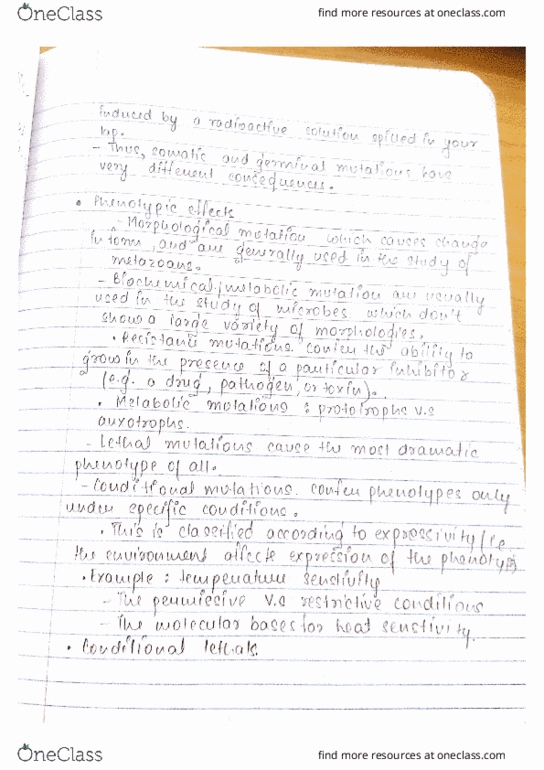 OneClass
find more resources at oneclass.com
induced by a radioactive solution spilled in your
lap.
- Thus, somatic and germinal mutations have
very different consequences.
• Phenotypic effects
- Morphological mutation which causes change
in form, and are generally used in the study of
metazoans.
- Biochemical/metabolic mutation are usually
used in the study of microbes which don't
show a large variety of morphologies.
• Resistant mutations confer the ability to
grow in the presence of a particular inhibitor
(e.g. a drug, pathogen, or toxin).
• Metabolic mutations : prototrophs v.s
auxotrophs.
- Lethal mutations cause the most dramatic
phenotype of all.
- Conditional mutations confer phenotypes only
under specific conditions.
• This is classified according to expressivity (i.e
the environment affects expression of the phenotype)
• Example : temperature senstivity
- The permissive v.s restrictive conditions
- The molecular bases for heat senstivity.
• Conditional lethals
OneClass
find more resources at oneclass.com